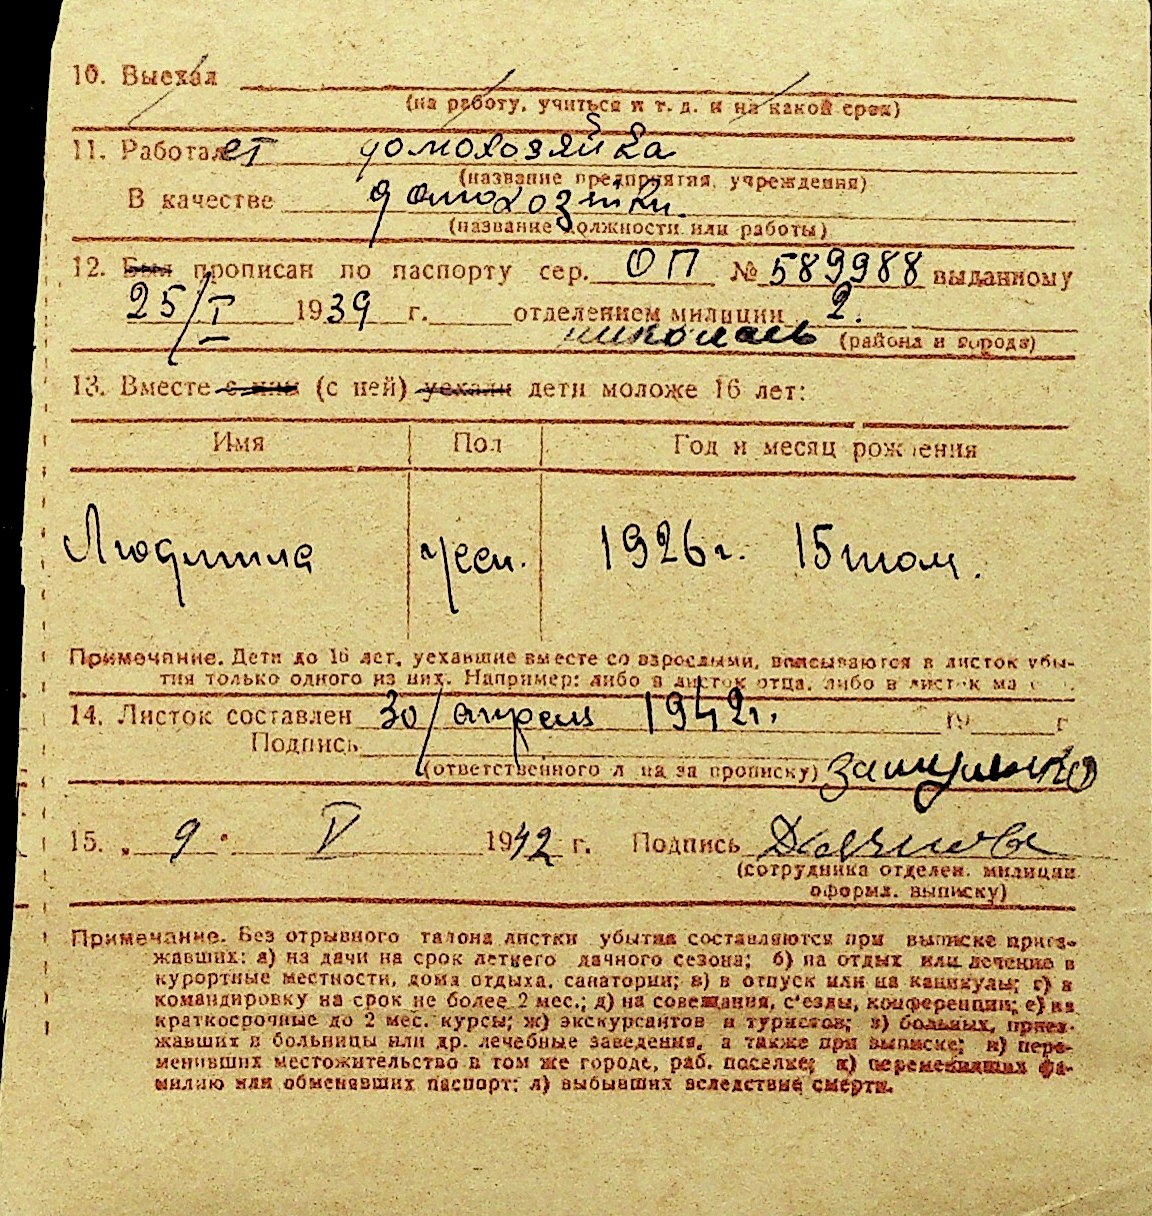 10. Выехал
(на работу, учиться и т. д. и на какой срок)
11. Работает домохозяйка
(название предприятия, учреждения)
В качестве домохозяйки.
(название должности или работы)
12. Был прописан по паспорту сер. ОП № 589988 выданному
25/I 1939 г. отделением милиции 2.
(района и города)
13. Вместе с ним (с ней) уехали дети моложе 16 лет:
Имя Пол Год и месяц рождения
Людмила жен. 1926 г. 15
Примечание. Дети до 16 лет, уехавшие вместе со взрослыми, вписываются в листок убы-
тия только одного из них. Например: либо в листок отца, либо в листок ма
14. Листок составлен 30/апреля 1942г. 19 г
Подпись
(ответственного л на за прописку)
15. „ 9 " V 1942 г. Подпись
(сотрудника отделен. милиции
оформл. выписку)
Примечание. Без отрывного талона листки убытия составляются при выписке приез-
жавших: а) на дачи на срок летнего дачного сезона; б) на отдых или лечение в
курортные местности, дома отдыха, санатории; в) в отпуск или на каникулы; г) в
командировку на срок не более 2 мес.; д) на совещания, с'езды, конференции; е) на
краткосрочные до 2 мес. курсы; ж) экскурсантов и туристов; з) больных, приез-
жавших в больницы или др. лечебные заведения, а также при выписке; и) пере-
менивших местожительство в том же городе, раб. поселке; к) переменивших фа-
милию или обменявших паспорт; л) выбывших вследствие смерти.